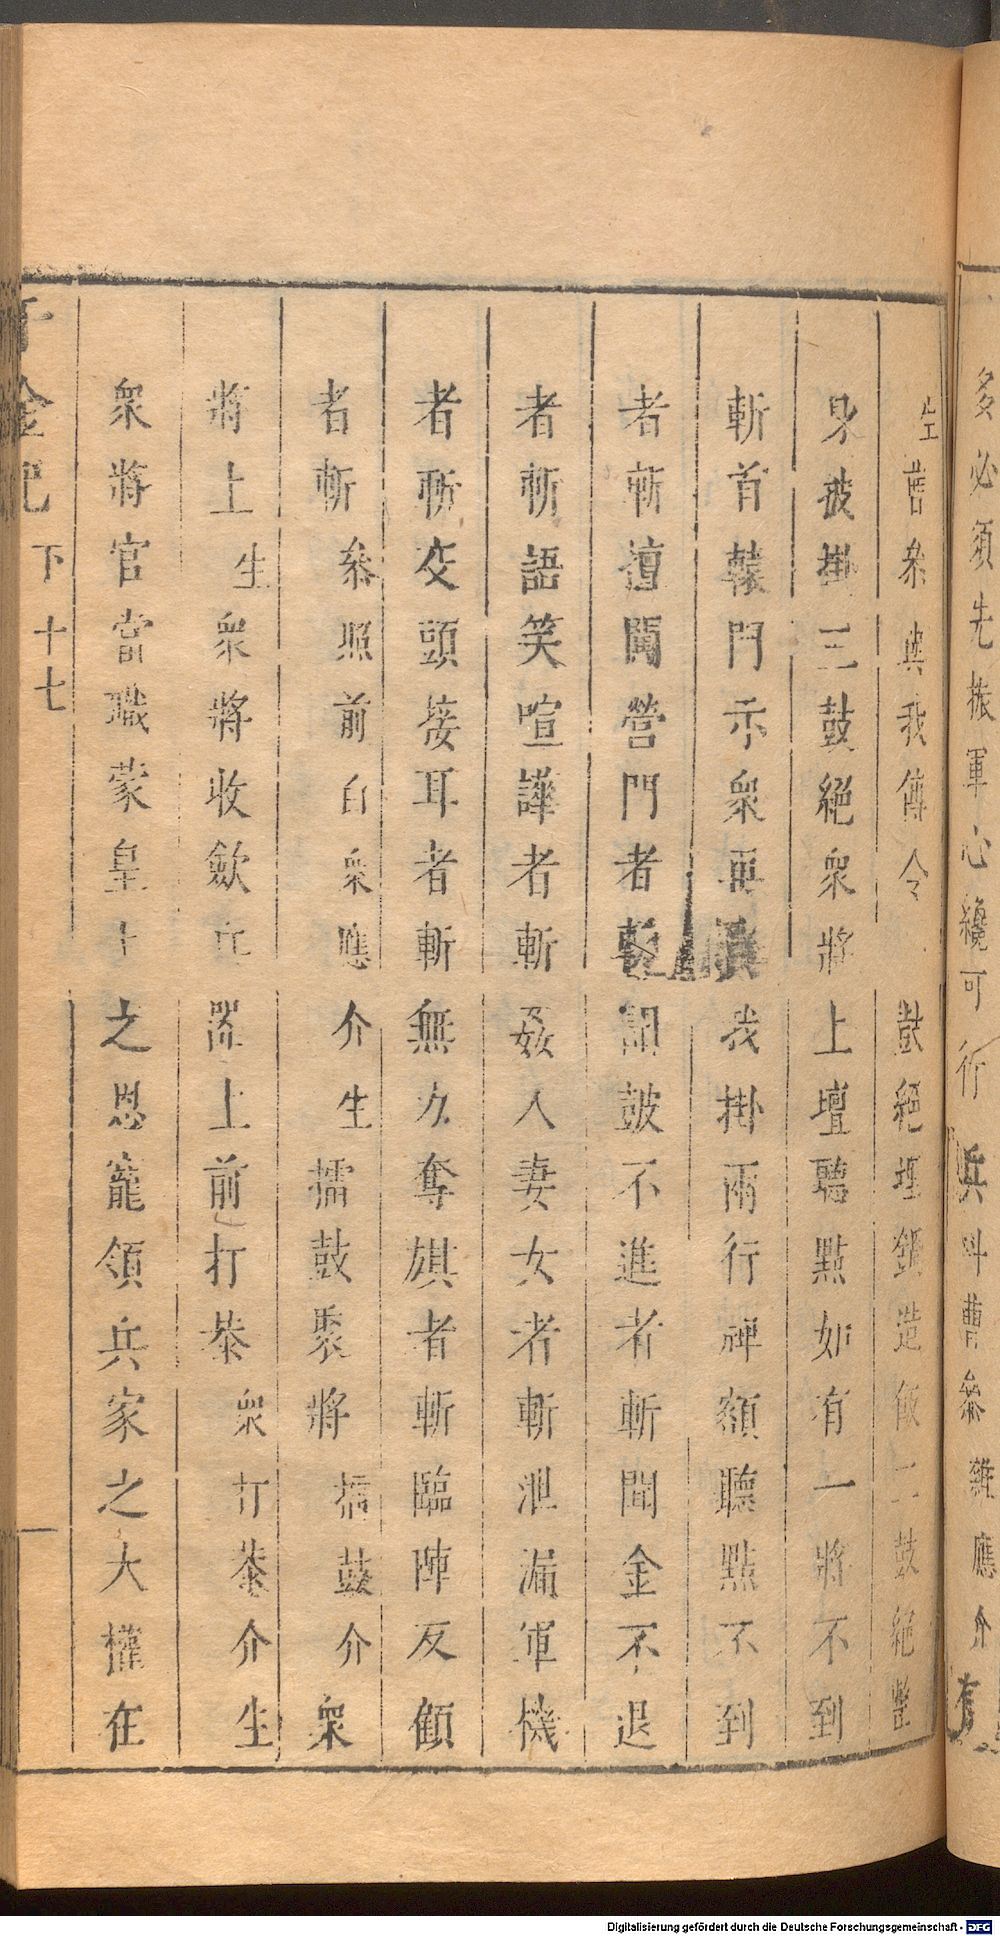 多必須先振軍心纔可行 兵 叫曹參 雜應介 有
生 曹參與我傳令 鼓絕埋鍋造飯二鼓絕整
身披掛三鼓絕衆將上壇聽點如有一將不到
斬首轅門示衆再 我掛兩行禆額聽點不到
者斬擅闖營門者 鼓不進者斬聞金不退
者斬語笑喧譁者斬姦人妻女者斬泄漏軍機
者斬交頭接耳者斬無力奪旗者斬臨陣反顧
者斬 叅照前白衆應 介 生 擂鼓聚將 擂鼓介 衆
將上 生 衆將收歛 上前打恭 衆打恭介 生
衆將官當職蒙皇上之恩寵領兵家之大權在
千金記 下 十七
Digitalisierung gefördert durch die Deutsche Forschungsgemeinschaft - DFG